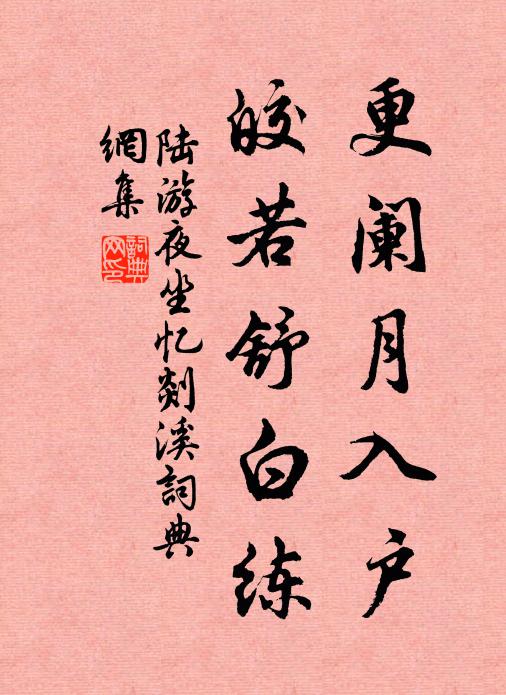 更阑月入户
皎若舒白练
陆游夜坐忆剡溪詞典
網集
詞典网印